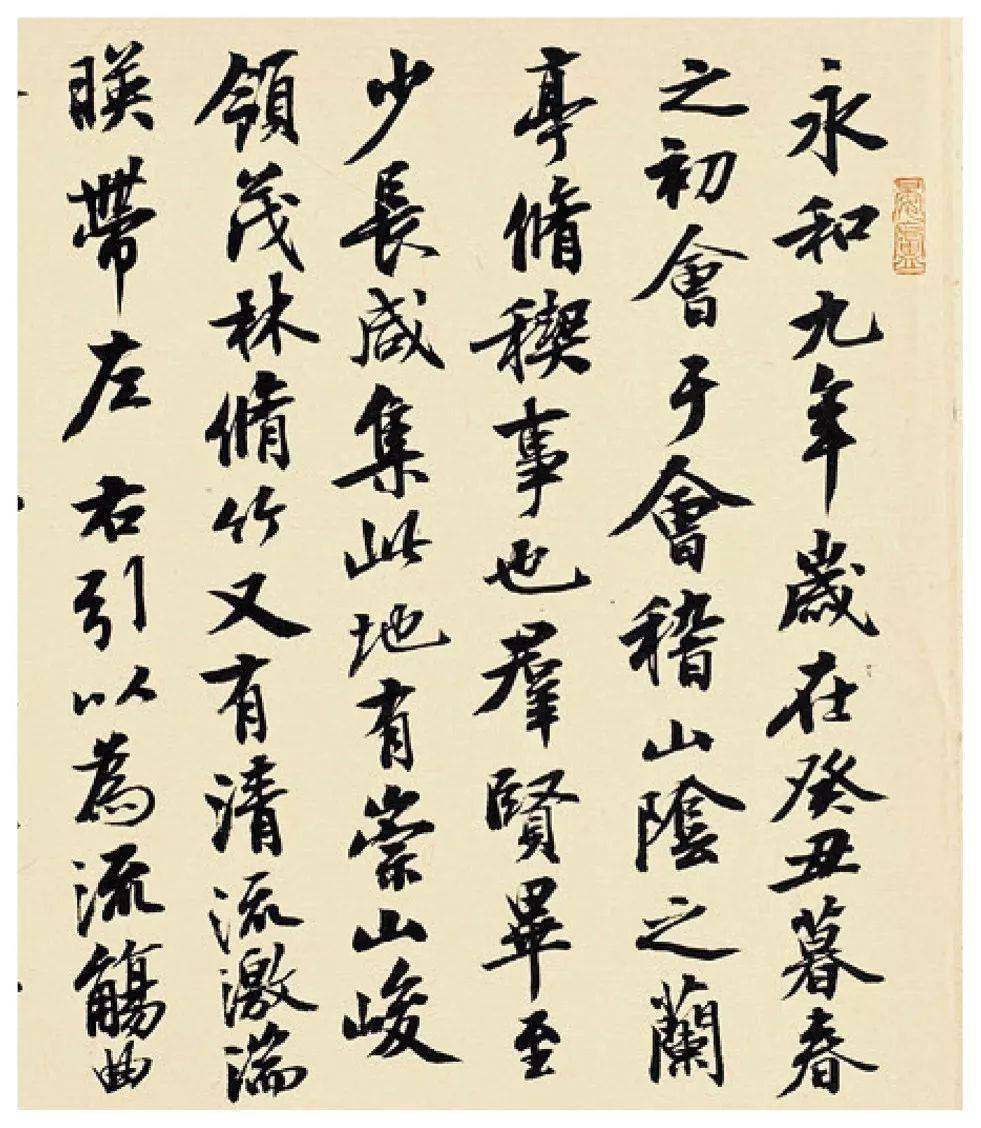 永和九年歲在癸丑暮春
之初會于會稽山陰之蘭
亭脩稧事也羣賢畢至
少長咸集此地有崇山峻
領茂林脩竹又有清流激湍
暎帶左右引以為流觴曲